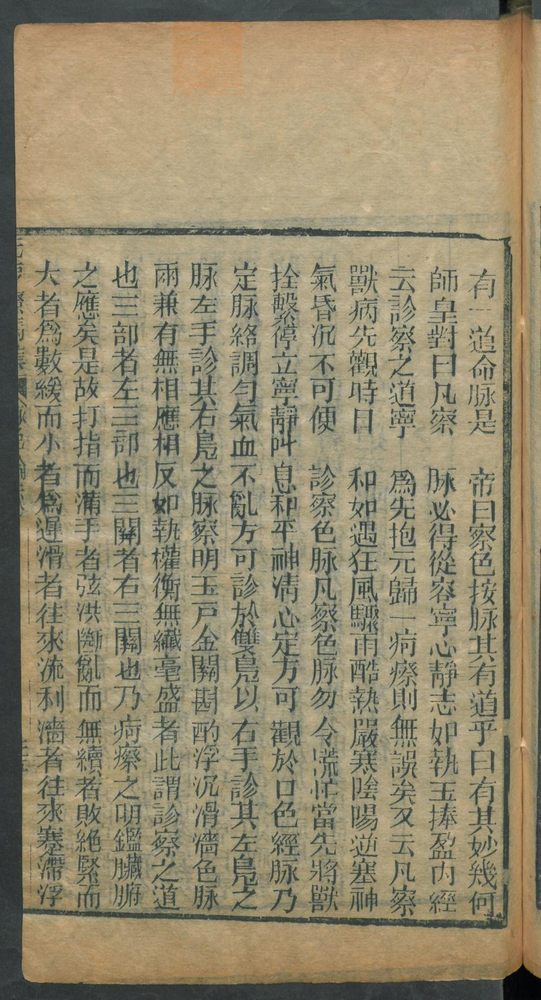 有一道命脉是　帝曰察色按脉其有道乎曰有其妙幾何
師皇對曰凡察　脉必得從容寧心靜志如執玉捧盈内經
云診察之道寧　爲先抱元歸一痾瘵則無誤矣又云凡察
獸病先觀時日　和如遇狂風驟雨酷熱嚴寒陰陽逆塞神
氣昏沉不可便　診察色脉凡察色脉勿令慌忙當先將獸
拴繫停立寧靜呌息和平神清心定方可觀於口色經脉乃
定脉絡調勻氣血不亂方可診於雙鳧以右手診其左鳧之
脉左手診其右鳧之脉察明玉戸金關斟酌浮沉滑濇色脉
雨兼有無相應相反如執權衡無纖毫盛者此謂診察之道
也三部者左三部也三關者右三關也乃痾瘵之明鑑臟腑
之應矣是故打指而滿手者弦洪斷亂而無續者敗絶緊而
大者爲數緩而小者爲遲滑者往來流利濇者往來塞滯浮